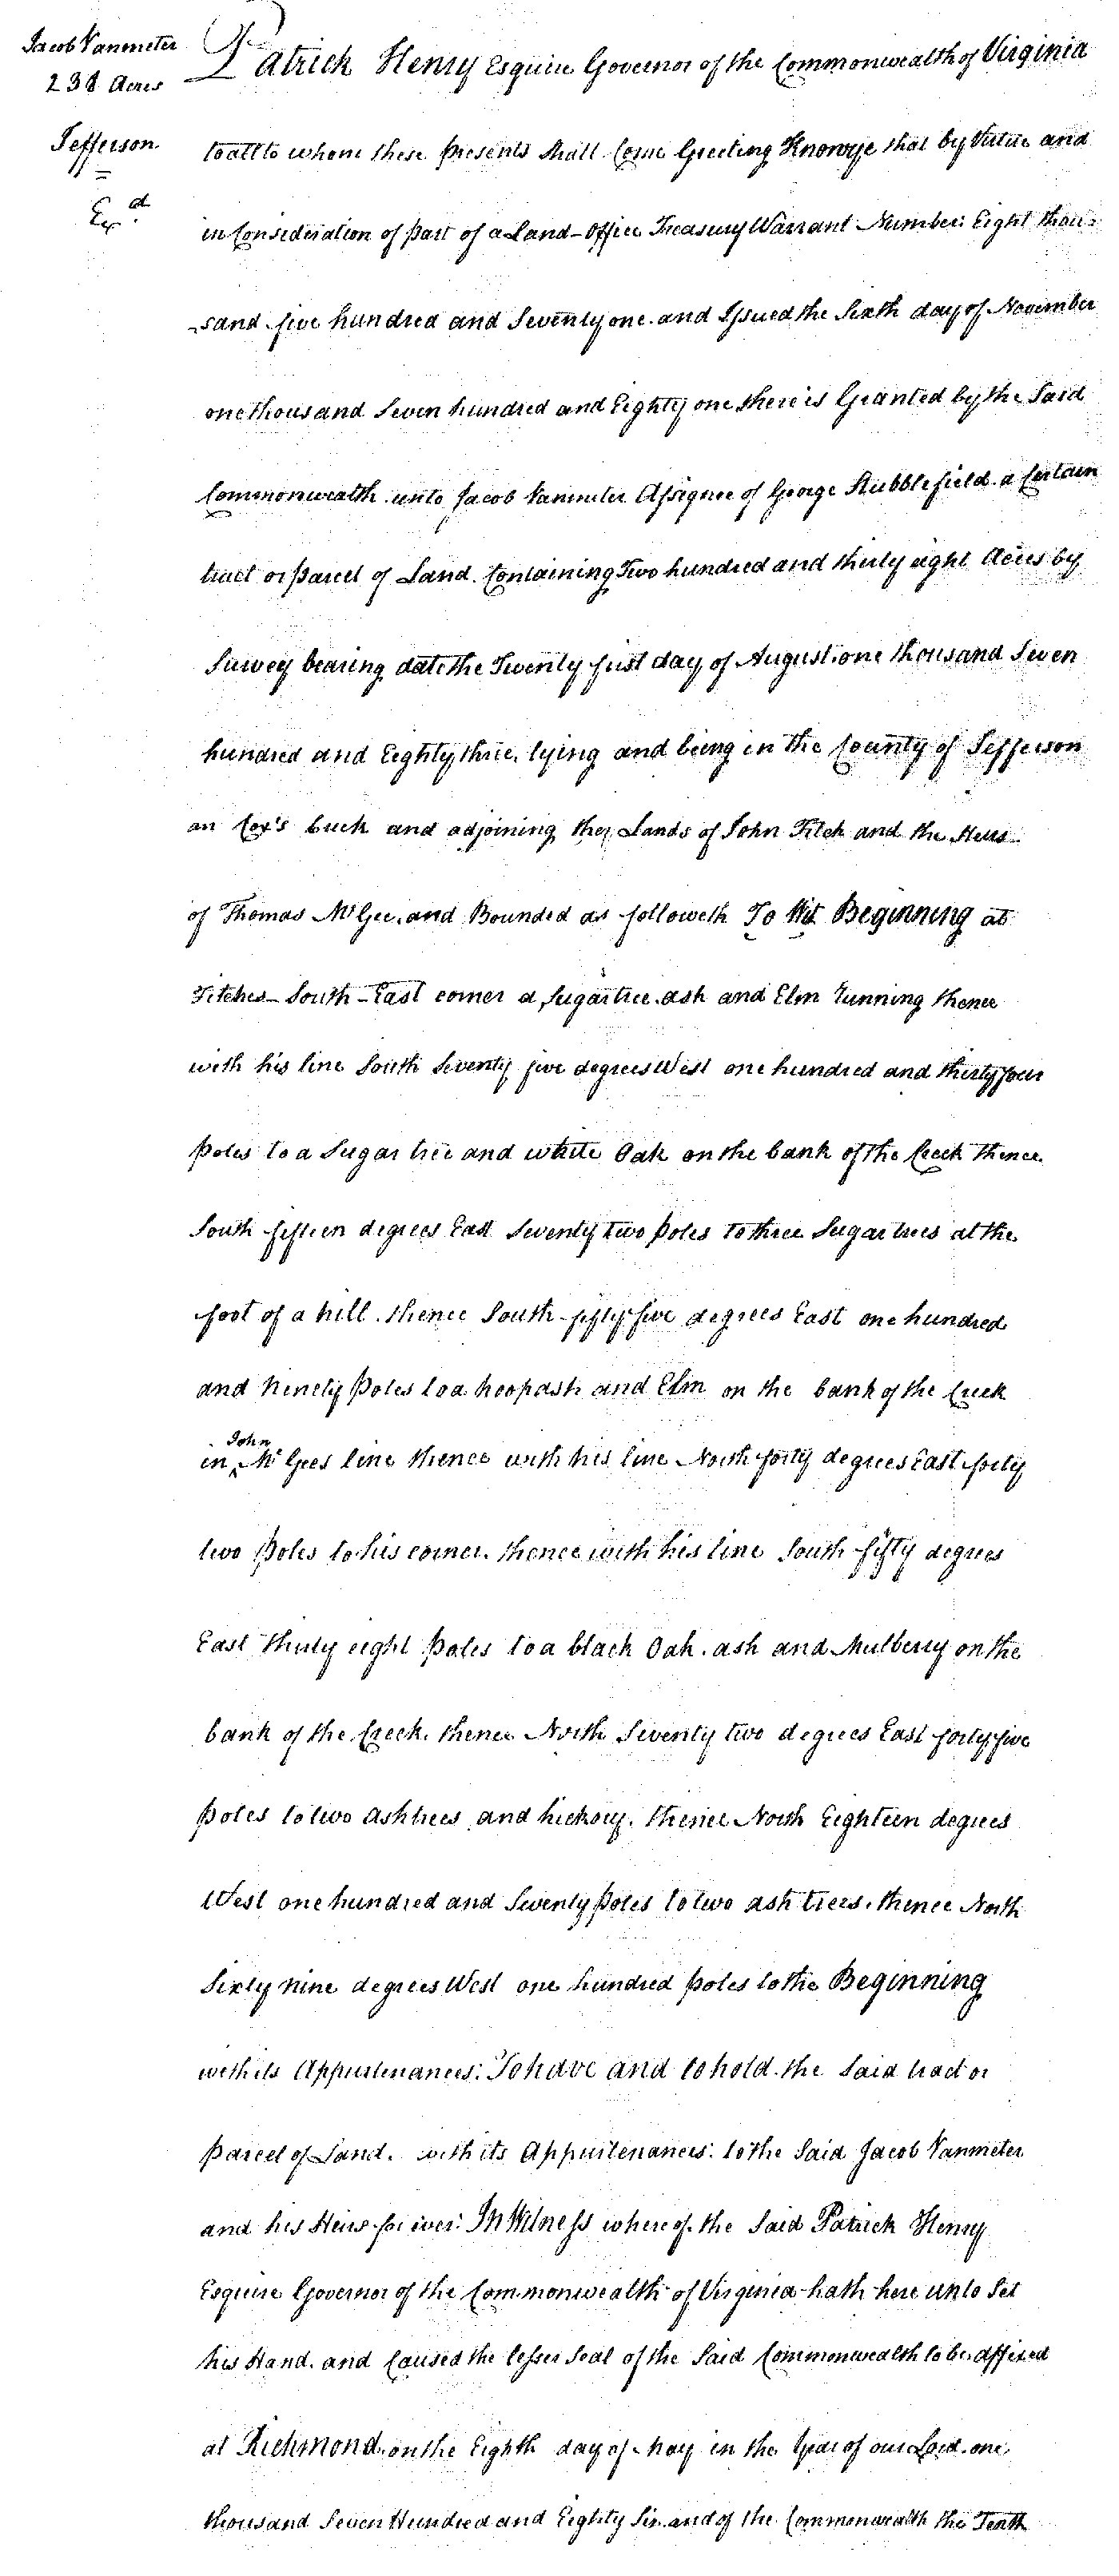 Jacob Vanmeter
238 Acres
Jefferson
Exd.
Patrick Henry Esquire Governor of the Commonwealth of Virginia
to all to whom these presents shall Come Greeting Know ye that by Virtue and
in Consideration of part of a Land-Office Treasury Warrant Number: Eight thou-
-sand five hundred and Seventy one and Issued the Sixth day of November
one thousand Seven hundred and Eighty one there is Granted by the Said
Commonwealth unto Jacob Vanmeter Assignee of George Stubblefield a Certain
tract or parcel of Land Containing Two hundred and thirty eight Acres by
Survey bearing date the Twenty first day of August one thousand Seven
hundred and Eighty three. lying and being in the County of Jefferson
on Cox's Creek and adjoining the Lands of John Fitch and the Heirs
of Thomas McGee, and Bounded as followeth To Wit Beginning at
Fitches South-East corner a Sugartree ash and Elm running thence
with his line South Seventy five degrees West one hundred and thirty four
poles to a Sugar tree and white Oak on the bank of the Creek thence
South fifteen degrees East Seventy two poles to three Sugar trees at the
foot of a hill. thence South fifty five degrees East one hundred
and Ninety Poles to a hoopash and Elm on the bank of the Creek
John
in ‸ McGees line thence with his line North forty degrees East forty
two poles to his corner. thence with his line South fifty degrees
East thirty eight poles to a black Oak. ash and Mulberry on the
bank of the Creek. thence North Seventy two degrees East forty five
poles to two ash trees and hickory. thence North Eighteen degrees
West one hundred and Seventy poles to two ash trees. thence North
Sixty nine degrees West one hundred poles to the Beginning
with its Appurtenances: To have and to hold the Said tract or
parcel of Land. with its Appurtenances: to the Said Jacob Vanmeter
and his Heirs for ever: In Witness whereof the Said Patrick Henry
Esquire Governor of the Commonwealth of Virginia hath here unto Set
his Hand. and Caused the lesser Seal of the Said Commonwealth to be affixed
at Richmond. on the Eighth day of May in the Year of our Lord. one
thousand Seven Hundred and Eighty Six. and of the Commonwealth the Tenth